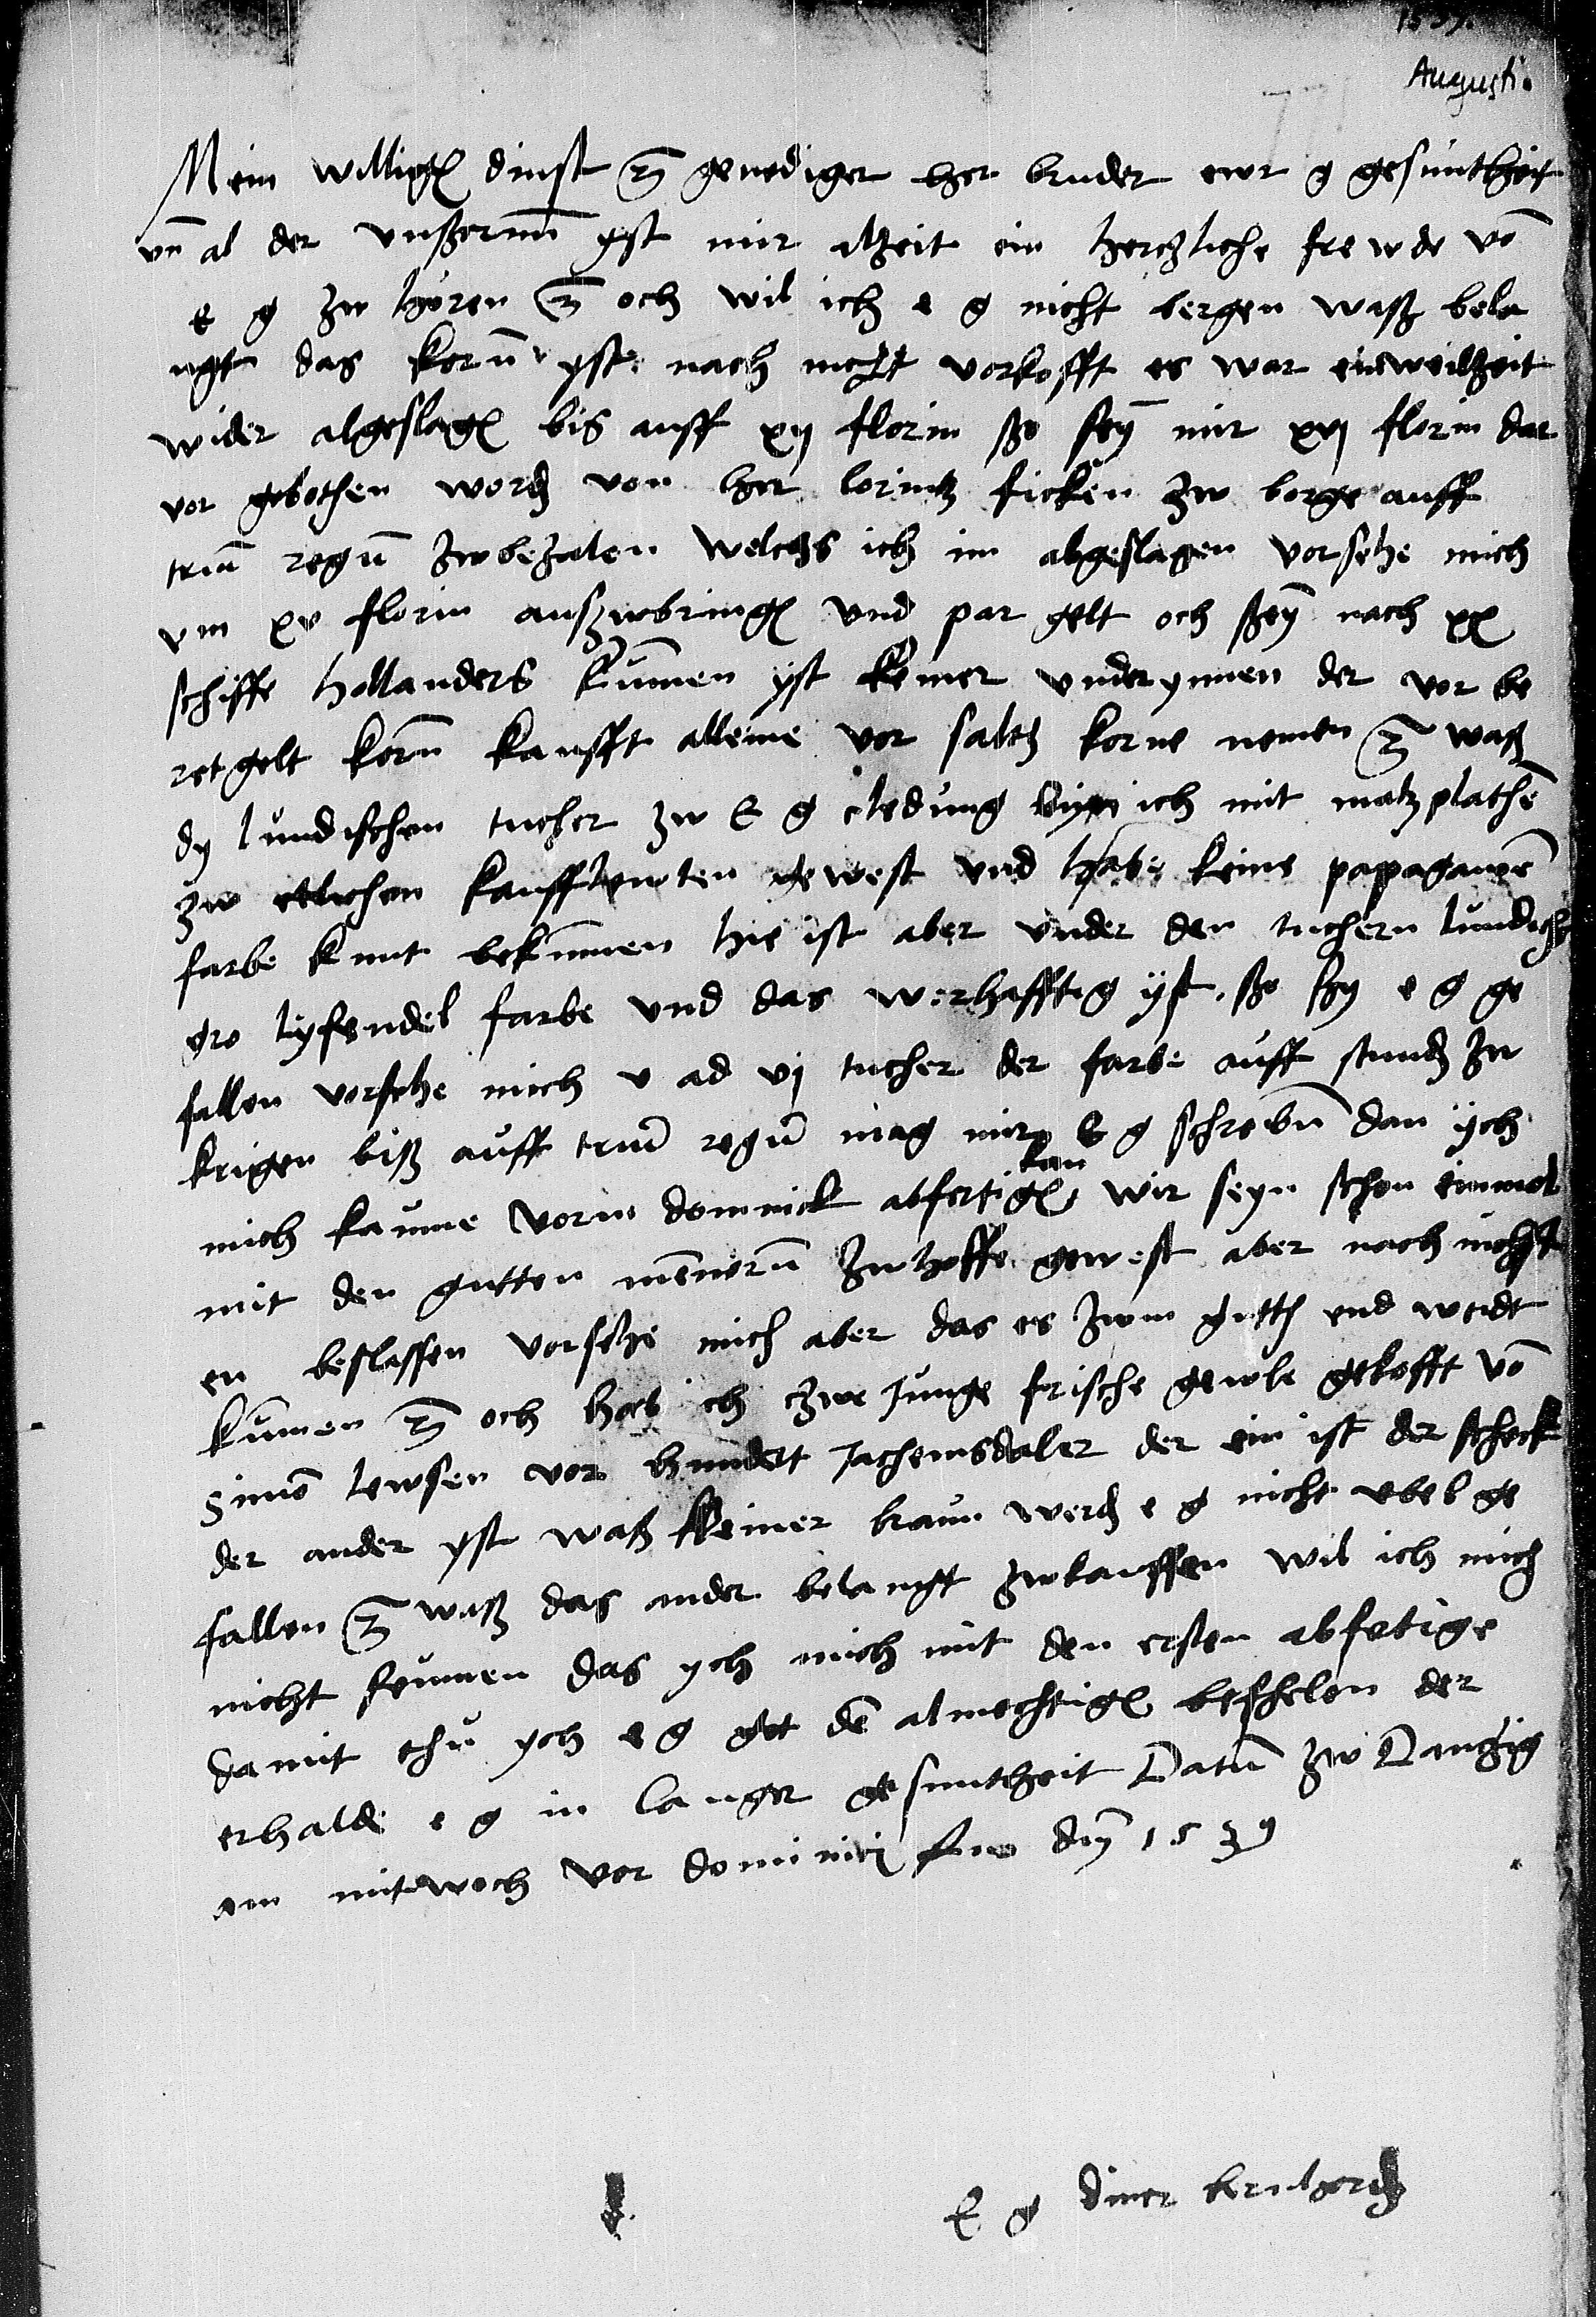 1539.
Augusti.
Mein willige dinst genediger her bruder ewr g gesuntheit
vn̄ al der vnßernn̄ yst mir alzeit ein herczliche frewde vō
e g zw hören och wil ich e g nicht bergen waß bela
ngt das korn̄ yst nach nicht vorkofft es war einweilzeit
wider abgeslagē bis auff xij florin ße seȳ mir xvj florin dar
vor gebothen wordē von her lorintz ficken zw borge auff
triū regū zwbezalen welchs ich im abgeslagen vorsehe mich
vm xv florin außzwbringē vnd par gelt och ßeȳ nach xx
schiffe hollanders kūmen yst keiner vnderynnen der vor be
ret gelt korn̄ kaufft alleine vor saltz korne nemen waß
dy lundischen tucher zw E g cledung byn ich mit matz plathē
zw etlichen kauffleuten gewest vnd habe keine papagawē
farbe kunt bekūmen hie ist aber vnder den tuchern lundisch
gro lyfendel farbe vnd das werhafftig yst ße ßy e g ge
fallen vorsehe mich v ad vj tucher der farbe auff stundē zw
krigen biß auff triū regū mag mir E g schrebn̄ dan ych
kan
mich kaume vorm dominick abfertigē wir seyn schon einmol
mit den gutten mēnern̄ zw hoffe gewest aber nach nichst
en beslassen vorsehe mich aber das es zwm guttē end werdt
kumen och hab ich czwe Junge frische gewle gekofft vō
Simō lewsen vor hundert Jachemsdaler der ein ist der scheck
der ander yst waß kleiner braun werdē e g nicht vbel ge
fallen waß das ander belangt zwkauffen wil ich mich
nicht seumen das ych mich mit den ersten abfertige
da mit thu ych e g got dē almechtigē befhelen der
erhalde e g in langer gesuntheit Datū zw Danczig
am mitwoch vor dominici 1539
E g diner